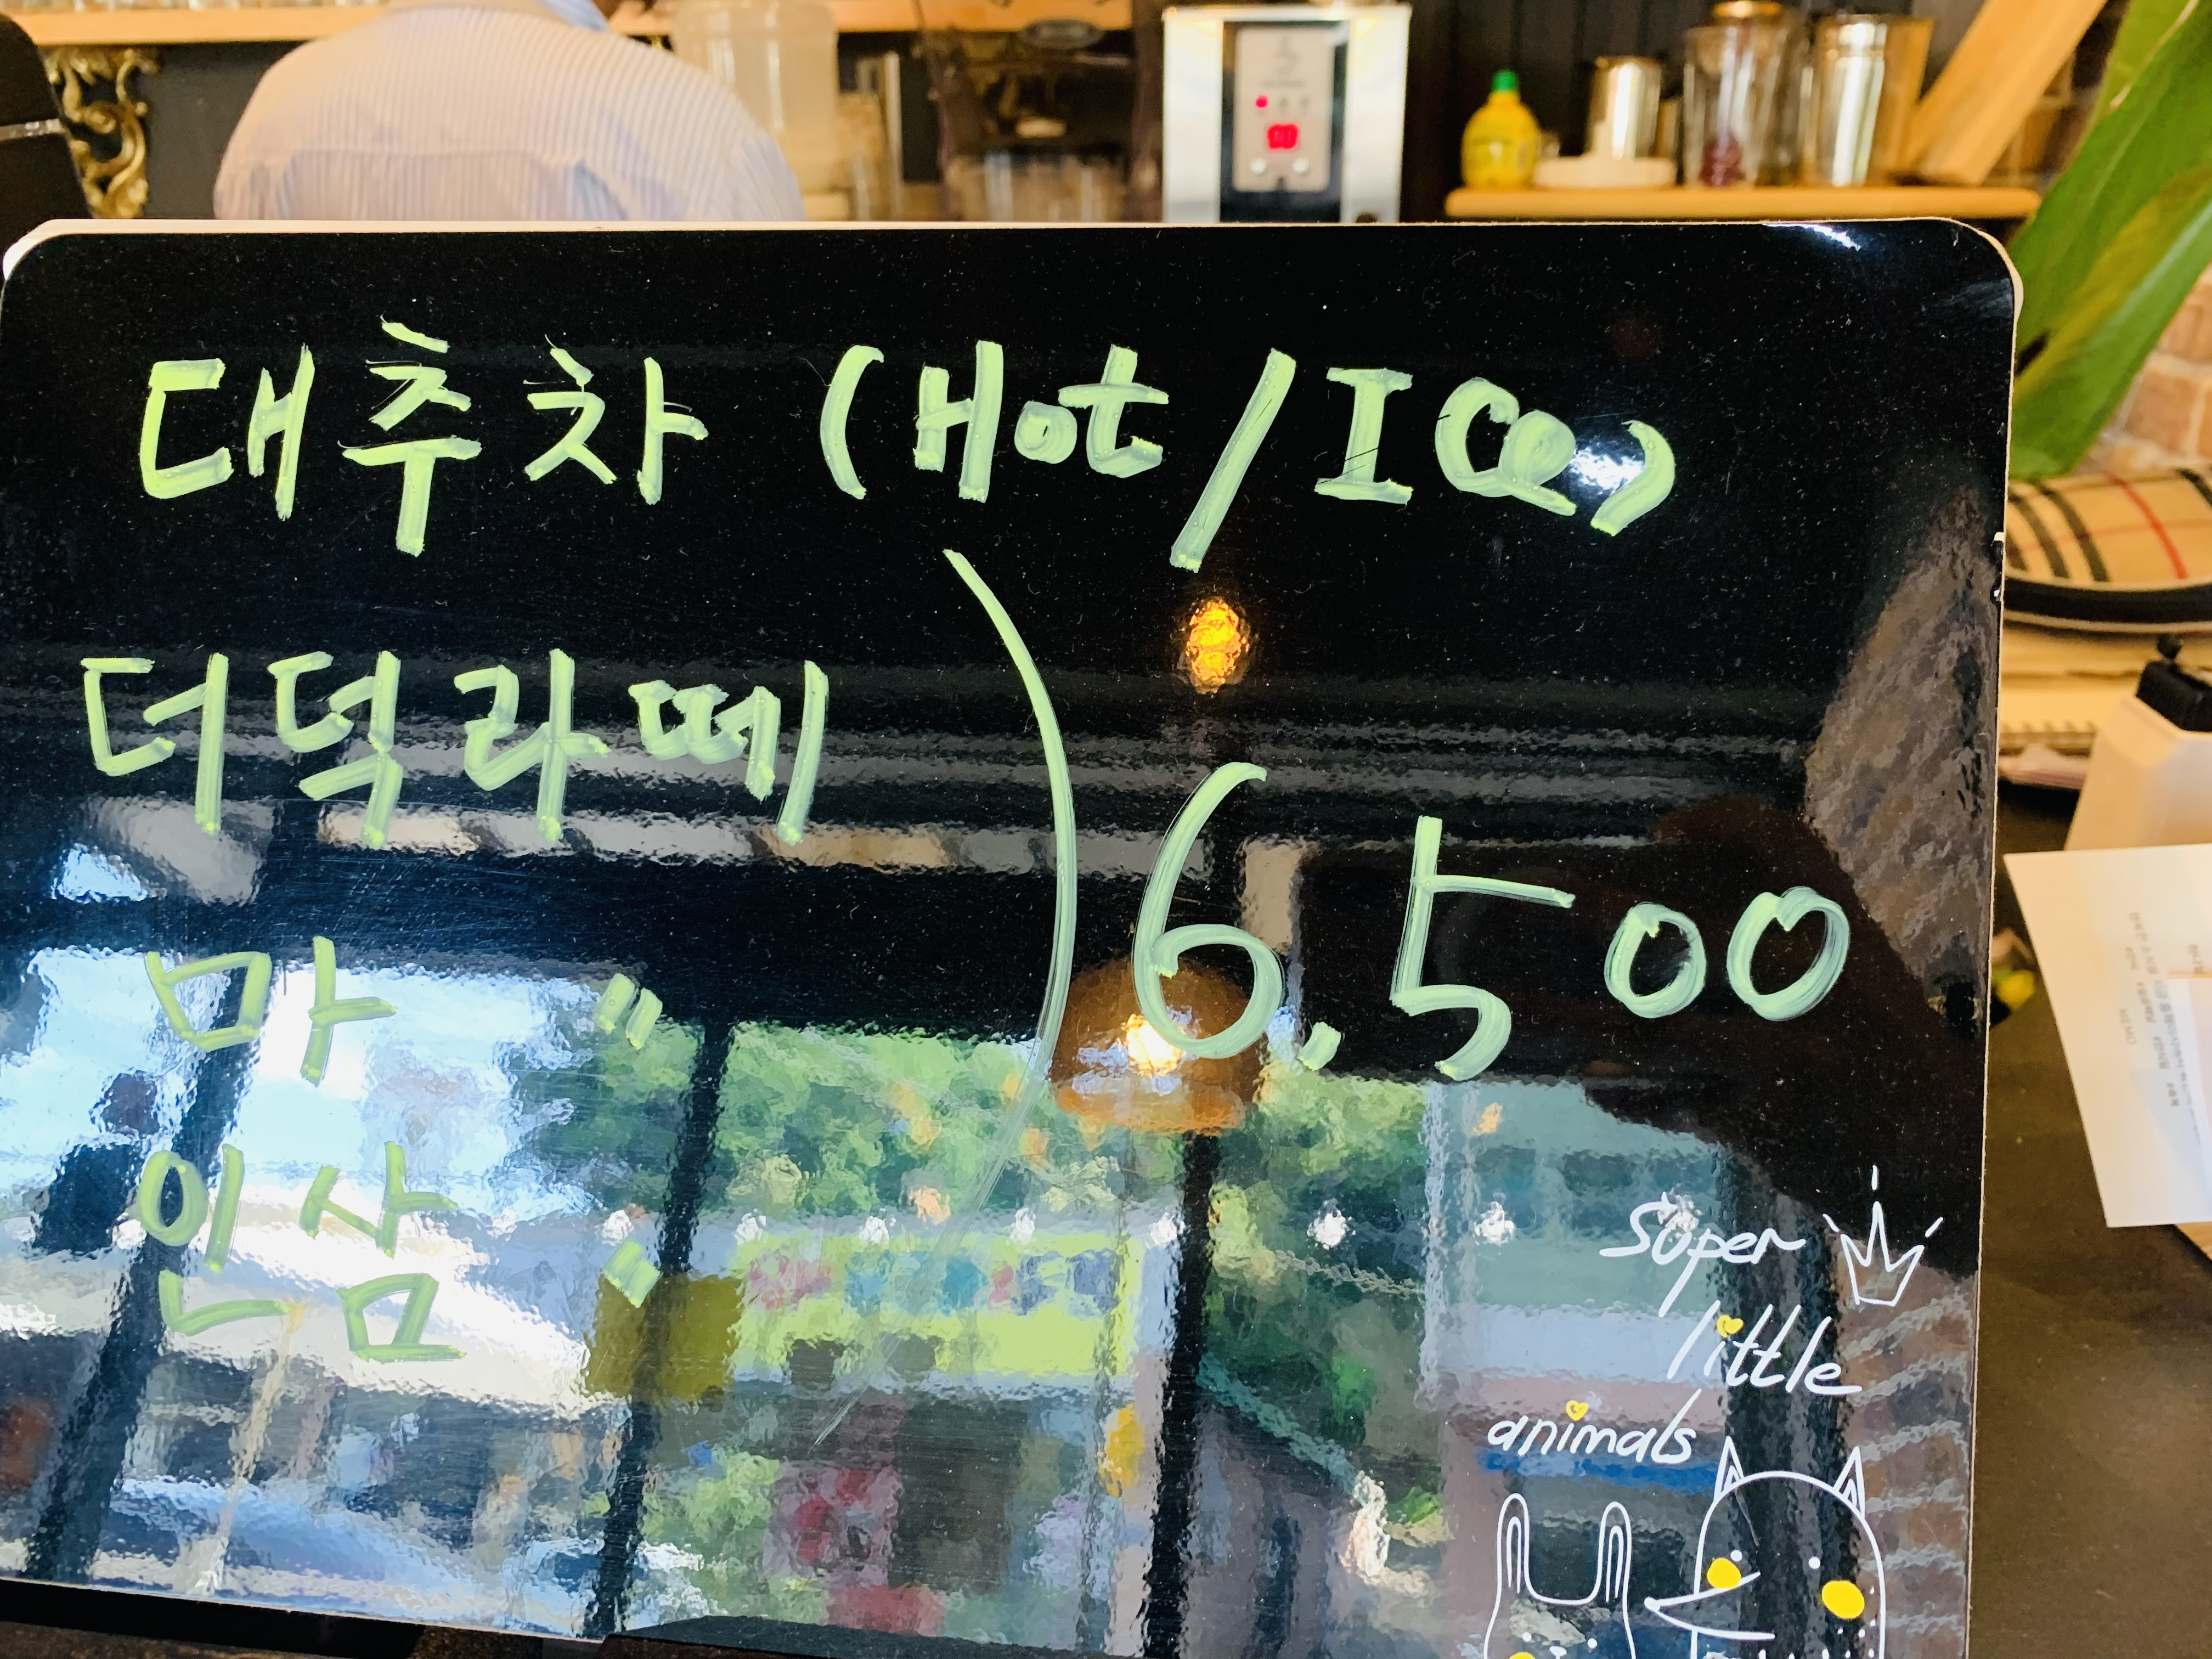 대추차 (Hot/Ice)
더덕라떼
마 "
인삼 "
6,500
Super
little
animals